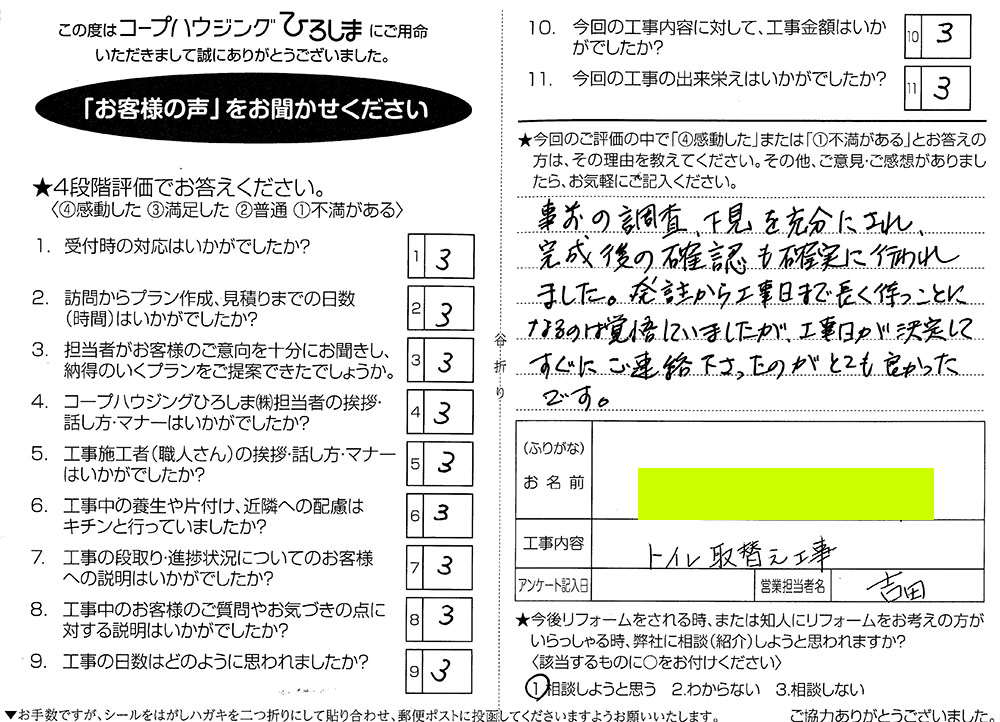 この度はコープハウジングひろしまにご用命
いただきまして誠にありがとうございました。
「お客様の声」をお聞かせください
★4段階評価でお答えください。
〈④感動した ③満足した ②普通 ①不満がある〉
1. 受付時の対応はいかがでしたか?
1 3
2. 訪問からプラン作成、見積りまでの日数
（時間）はいかがでしたか?
2 3
3. 担当者がお客様のご意向を十分にお聞きし、
納得のいくプランをご提案できたでしょうか。
3 3
4. コープハウジングひろしま㈱担当者の挨拶・
話し方・マナーはいかがでしたか?
4 3
5. 工事施工者（職人さん）の挨拶・話し方・マナー
はいかがでしたか?
5 3
6. 工事中の養生や片付け、近隣への配慮は
キチンと行っていましたか?
6 3
7. 工事の段取り・進捗状況についてのお客様
への説明はいかがでしたか?
7 3
8. 工事中のお客様のご質問やお気づきの点に
対する説明はいかがでしたか?
8 3
9. 工事の日数はどのように思われましたか?
9 3
▼お手数ですが、シールをはがしハガキを二つ折りにして貼り合わせ、郵便ポストに投函してくださいますようお願いいたします。
谷折り
10. 今回の工事内容に対して、工事金額はいか
がでしたか?
10 3
11. 今回の工事の出来栄えはいかがでしたか?
11 3
★今回のご評価の中で「④感動した」または「①不満がある」とお答えの
方は、その理由を教えてください。その他、ご意見・ご感想がありまし
たら、お気軽にご記入ください。
事前の調査、下見を充分にされ、
完成後の確認も確実に行われ
ました。発注から工事日まで長く待つことに
なるのは覚悟していましたが、工事日が決定して
すぐにご連絡下さったのがとても良かった
です。
（ふりがな）
お名前
工事内容
トイレ取替え工事
アンケート記入日
営業担当者名
吉田
★今後リフォームをされる時、または知人にリフォームをお考えの方が
いらっしゃる時、弊社に相談（紹介）しようと思われますか?
〈該当するものに○をお付けください〉
1.相談しようと思う 2.わからない 3.相談しない
ご協力ありがとうございました。